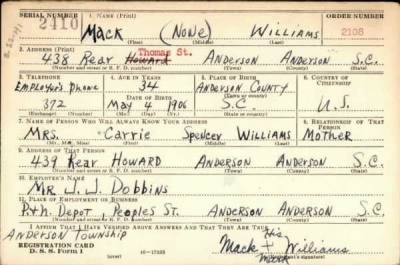 SERIAL NUMBER 1. NAME (Print) ORDER NUMBER
2410 MACK (NONE) WILLIAMS 2108
(First) (Middle) (Last)
2. ADDRESS (Print) Thomas St.
438 Rear Howard ANDERSON ANDERSON S.C.
(Number and street or R. F. D. number) (Town) (County) (State)
3. TELEPHONE 4. AGE IN YEARS 5. PLACE OF BIRTH 6. COUNTRY OF CITIZENSHIP
Employer's Phone 34 ANDERSON COUNTY
DATE OF BIRTH
372 MAY 4 1906 S.C. U.S.
(Mo.) (Day) (Yr.)
7. NAME OF PERSON WHO WILL ALWAYS KNOW YOUR ADDRESS 8. RELATIONSHIP OF THAT PERSON
MRS. Carrie Spencer WILLIAMS MOTHER
(Mr., Mrs., Miss) (First) (Middle) (Last)
9. ADDRESS OF THAT PERSON
439 Rear HOWARD ANDERSON ANDERSON S.C.
(Number and street or R. F. D. number) (Town) (County) (State)
10. EMPLOYER'S NAME
MR J. J. DOBBINS
11. PLACE OF EMPLOYMENT OR BUSINESS
P.+N. DEPOT, Peoples ST. ANDERSON ANDERSON S.C.
(Number and street or R. F. D. number) (Town) (County) (State)
I AFFIRM THAT I HAVE VERIFIED ABOVE ANSWERS AND THAT THEY ARE TRUE.
ANDERSON TOWNSHIP His
REGISTRATION CARD Mack + Williams
D. S. S. FORM 1 (over) Mark